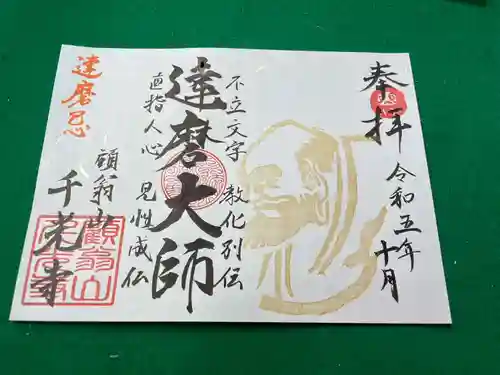 奉拝
令和五年
十月
不立文字 教化別伝
達磨大師
直指人心 見性成仏
達磨忌
顧翁山
千光寺
顧翁山